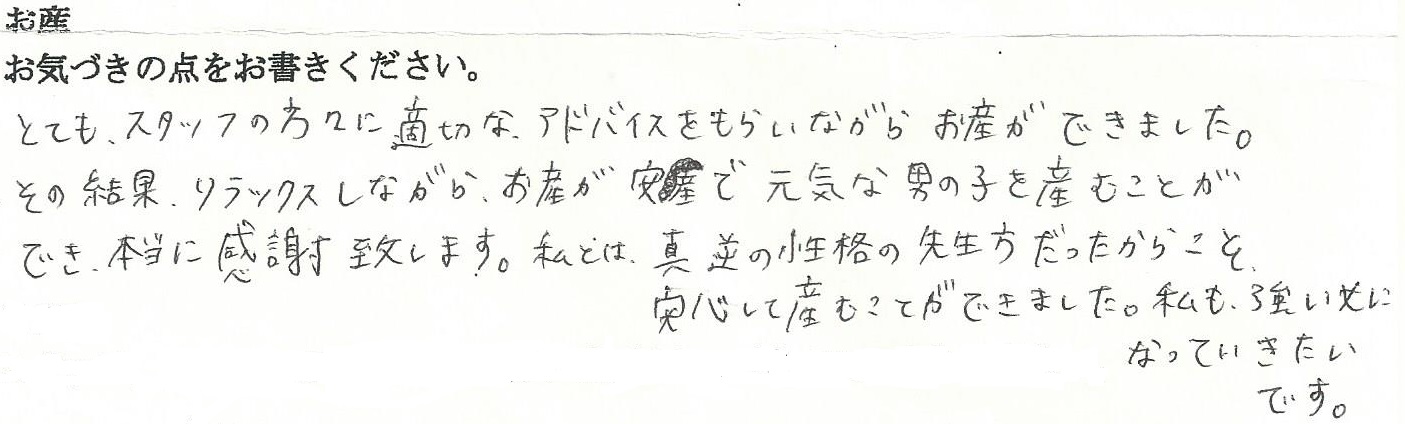 お産
お気づきの点をお書きください。
とても、スタッフの方々に適切な、アドバイスをもらいながら お産が できました。
その結果、リラックスしながら、お産が 安産で 元気な 男の子を産むことが
でき、本当に感謝す致します。私とは、真逆の性格の先生方だったからこそ、
安心して産むことができました。私も、強い
なっていきたい
です。